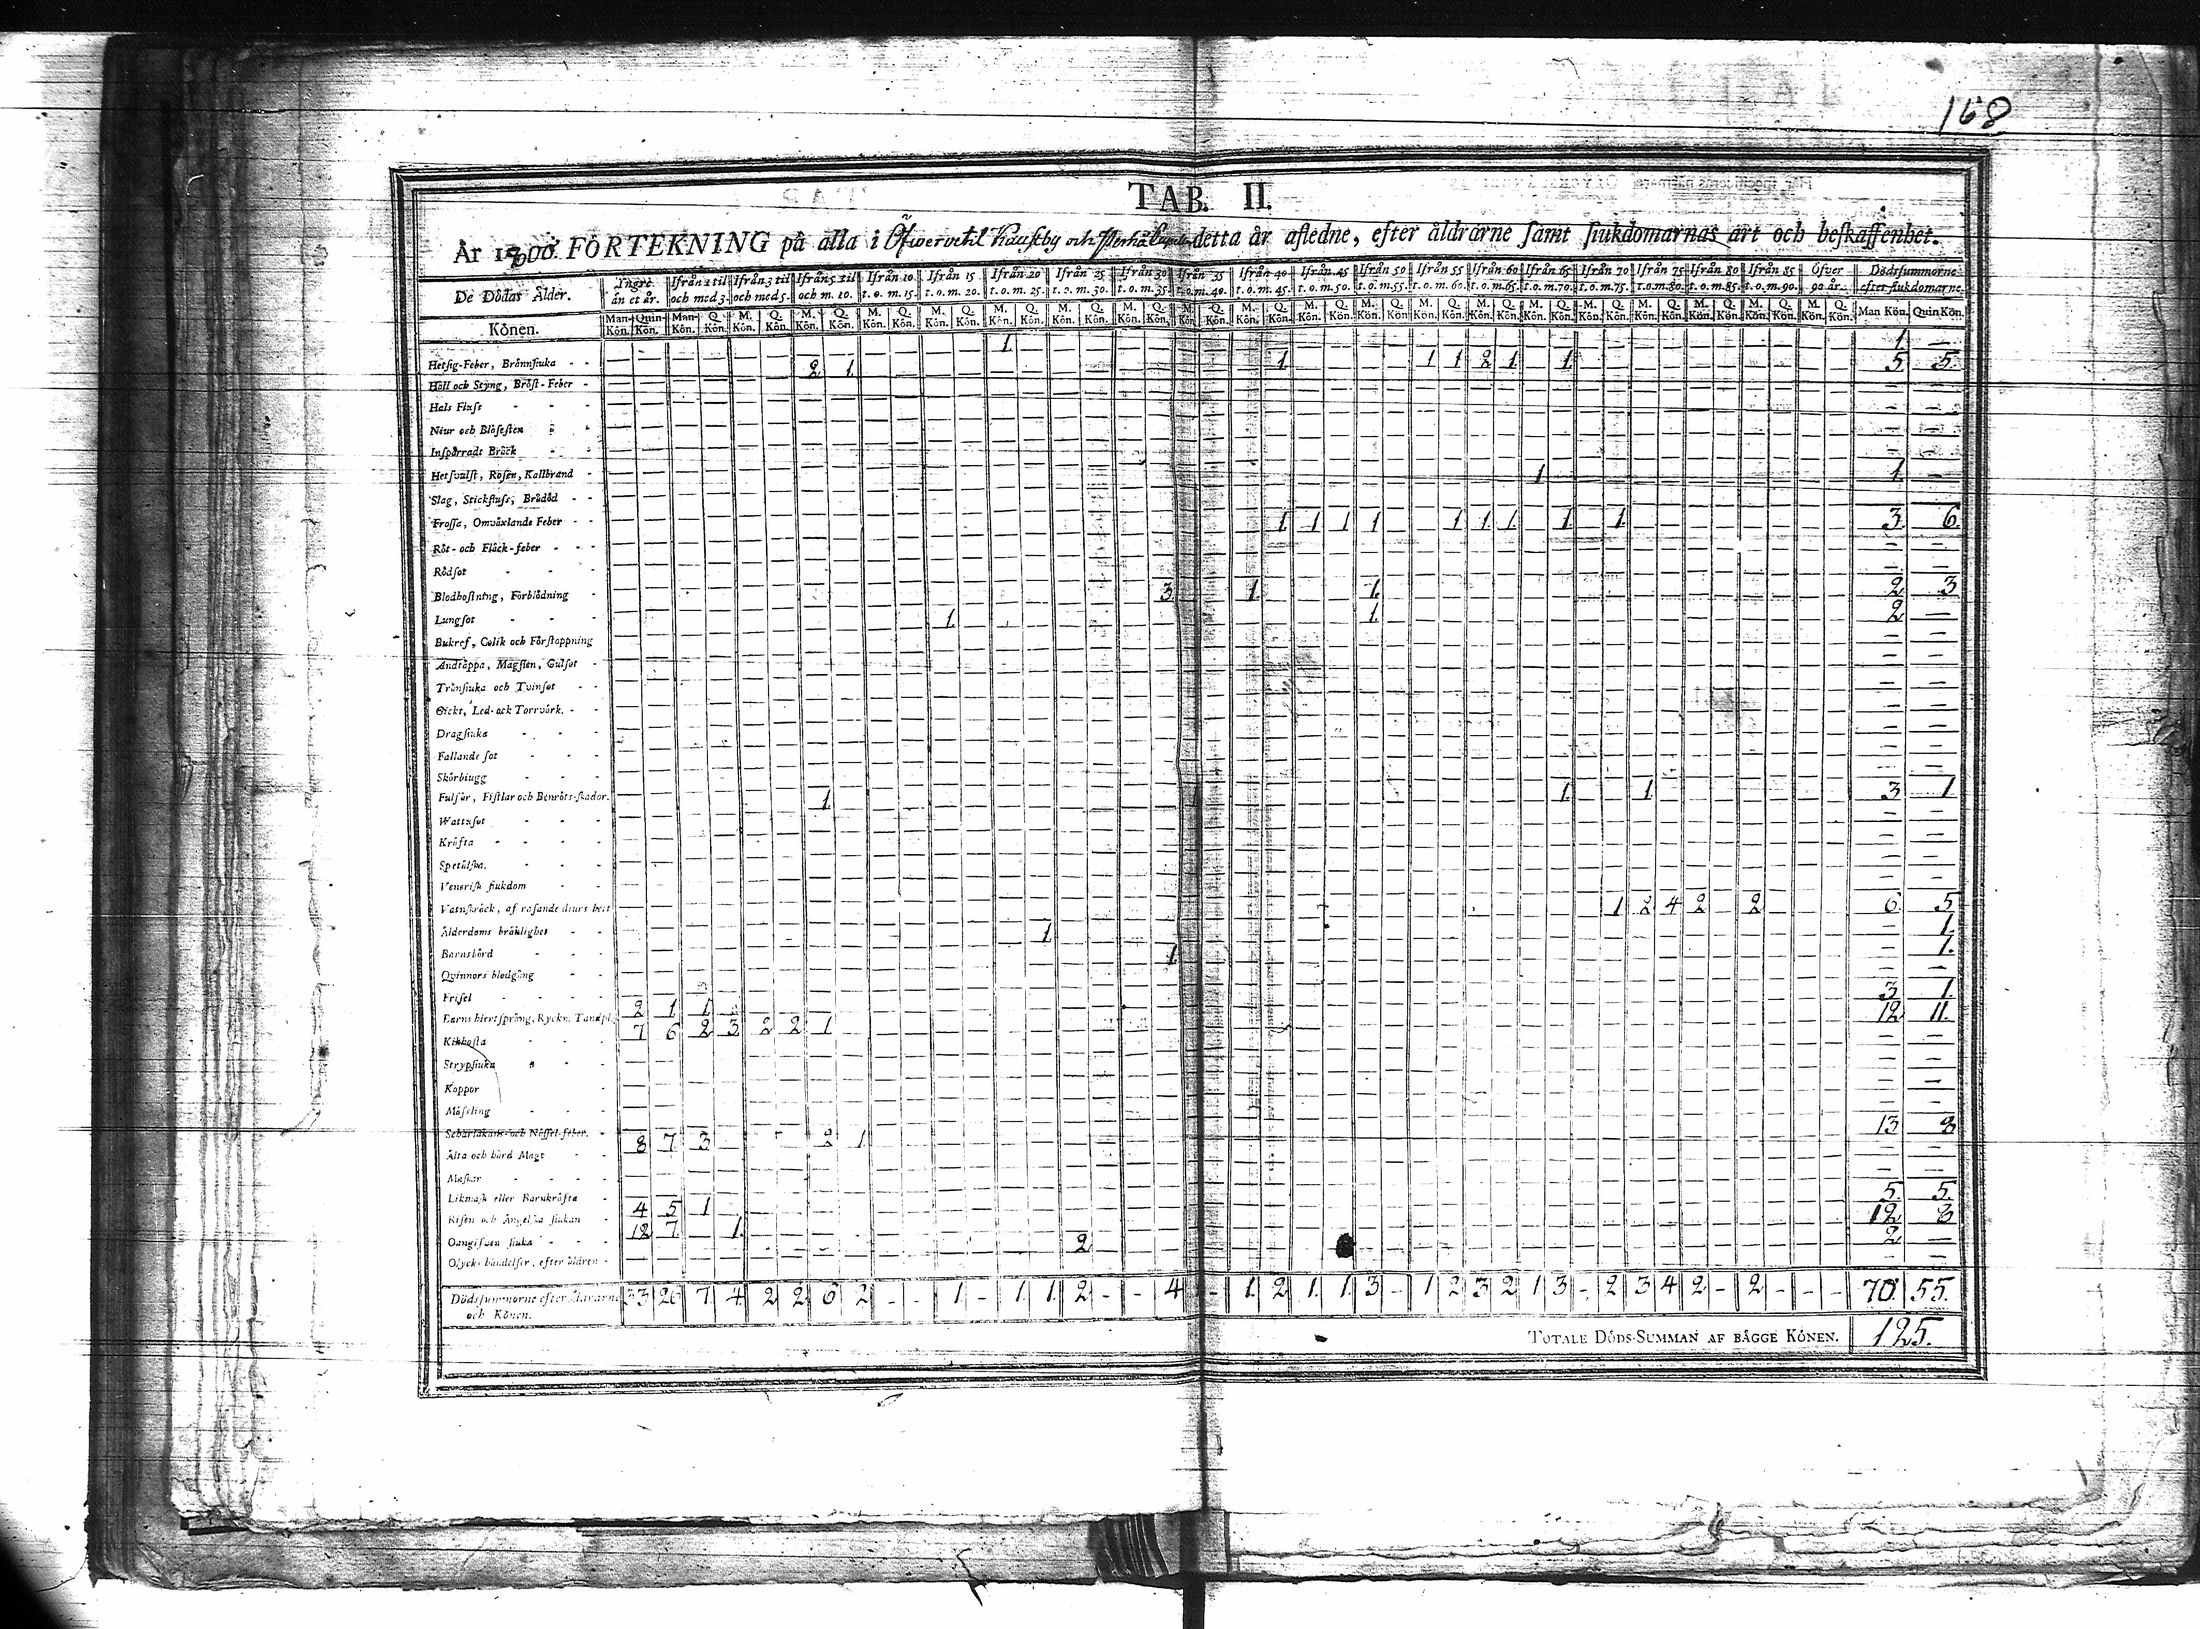 168
TAB. II.
År 1800. FÖRTEKNING på alla i Öfwervetil Kaustby och detta år afledne, efter åldrarne samt siukdomarnas art och beskaffenhet.
De Dödas Ålder. Yngre än et år. Ifrån 1 til och med 3. Ifrån 3 til och med 5. Ifrån 5 til och m. 10. Ifrån 10 t. o. m. 15. Ifrån 15 t. o. m. 20. Ifrån 20 t. o. m. 25. Ifrån 25 t. o. m. 30. Ifrån 30 t. o. m. 35. Ifrån 35 t. o. m. 40. Ifrån 40 t. o. m. 45. Ifrån 45 t. o. m. 50. Ifrån 50 t. o. m. 55. Ifrån 55 t. o. m. 60. Ifrån 60 t. o. m. 65. Ifrån 65 t. o. m. 70. Ifrån 70 t. o. m. 75. Ifrån 75 t. o. m. 80. Ifrån 80 t. o. m. 85. Ifrån 85 t. o. m. 90. Öfver 90 år. Dödssummorne efter siukdomarne.
Könen. Man Kön. Quin Kön. Man Kön. Q. Kön. M. Kön. Q. Kön. M. Kön. Q. Kön. M. Kön. Q. Kön. M. Kön. Q. Kön. M. Kön. Q. Kön. M. Kön. Q. Kön. M. Kön. Q. Kön. M. Kön. Q. Kön. M. Kön. Q. Kön. M. Kön. Q. Kön. M. Kön. Q. Kön. M. Kön. Q. Kön. M. Kön. Q. Kön. M. Kön. Q. Kön. M. Kön. Q. Kön. M. Kön. Q. Kön. M. Kön. Q. Kön. M. Kön. Q. Kön. M. Kön. Q. Kön. Man Kön. Quin Kön.
1. 1. —
Hetsig-Feber, Brännsiuka - - 2 1. 1. 1 1 2 1. 1. 5 5.
Håll och Styng, Bröst-Feber -
Hals Fluss - - -
Niur och Blåsesten - -
Inspärradt Bråck - -
Hetsvulst, Rosen, Kallbrand - 1 1. —
Slag, Stickfluss, Brådöd - -
Frossa, Omväxlande Feber - - 1. 1 1 1 1 1 1. 1. 1. 3 6.
Röt- och Fläck-feber - - -
Rödsot - - -
Blodhostning, Förblödning - 3. 1. 1. 2 3
Lungsot - - - 1. 1. 2 —
Bukref, Colik och Förstoppning
Andtäppa, Magsten, Gulsot -
Trånsiuka och Tvinsot - -
Gickt, Led- och Torrvärk. - -
Dragsiuka - - -
Fallande sot - - -
Skörbiugg - - -
Fulsår, Fistlar och Benröts-skador. 1. 1. 1. 3 1
Wattusot - - -
Kräfta - - - -
Spetälska. - - -
Venerisk siukdom - -
Vatnskräck, af rasande diurs bett 1 2 4 2 2 6. 5
Ålderdoms bräklighet - - 1. 1.
Barnsbörd - - 1. 1.
Qvinnors blodgång - -
Frisel - - - - 2 1. 1. 3 1.
Barns hiertspräng, Ryckn. Tandpl. 7 6 2 3 2 2 1 12 11.
Kikhosta - - -
Strypsiuka - - -
Koppor -
Mässling - - -
Scharlakans- och Nässel-feber. - 8 7. 3 2 1 13 8
Älta och hård Mage - -
Maskar - - - -
Likmask eller Barnkräfta - 4 5 1 5. 5.
Risen och Ängelska siukan - 12 7. 1. 12 8
Oangifven siuka - - - 2 2 —
Olycks händelser, efter åldren -
Dödssummorne efter åldrarne och Könen. 33 26 7. 4 2 2. 6 2 - - 1 - 1 1. 2 - - 4 - - 1. 2 1. 1. 3 - 1 2 3 2 1 3 - 2 3 4 2 - 2 - - - 70. 55.
TOTALE DÖDS-SUMMAN AF BÄGGE KÖNEN. 125.